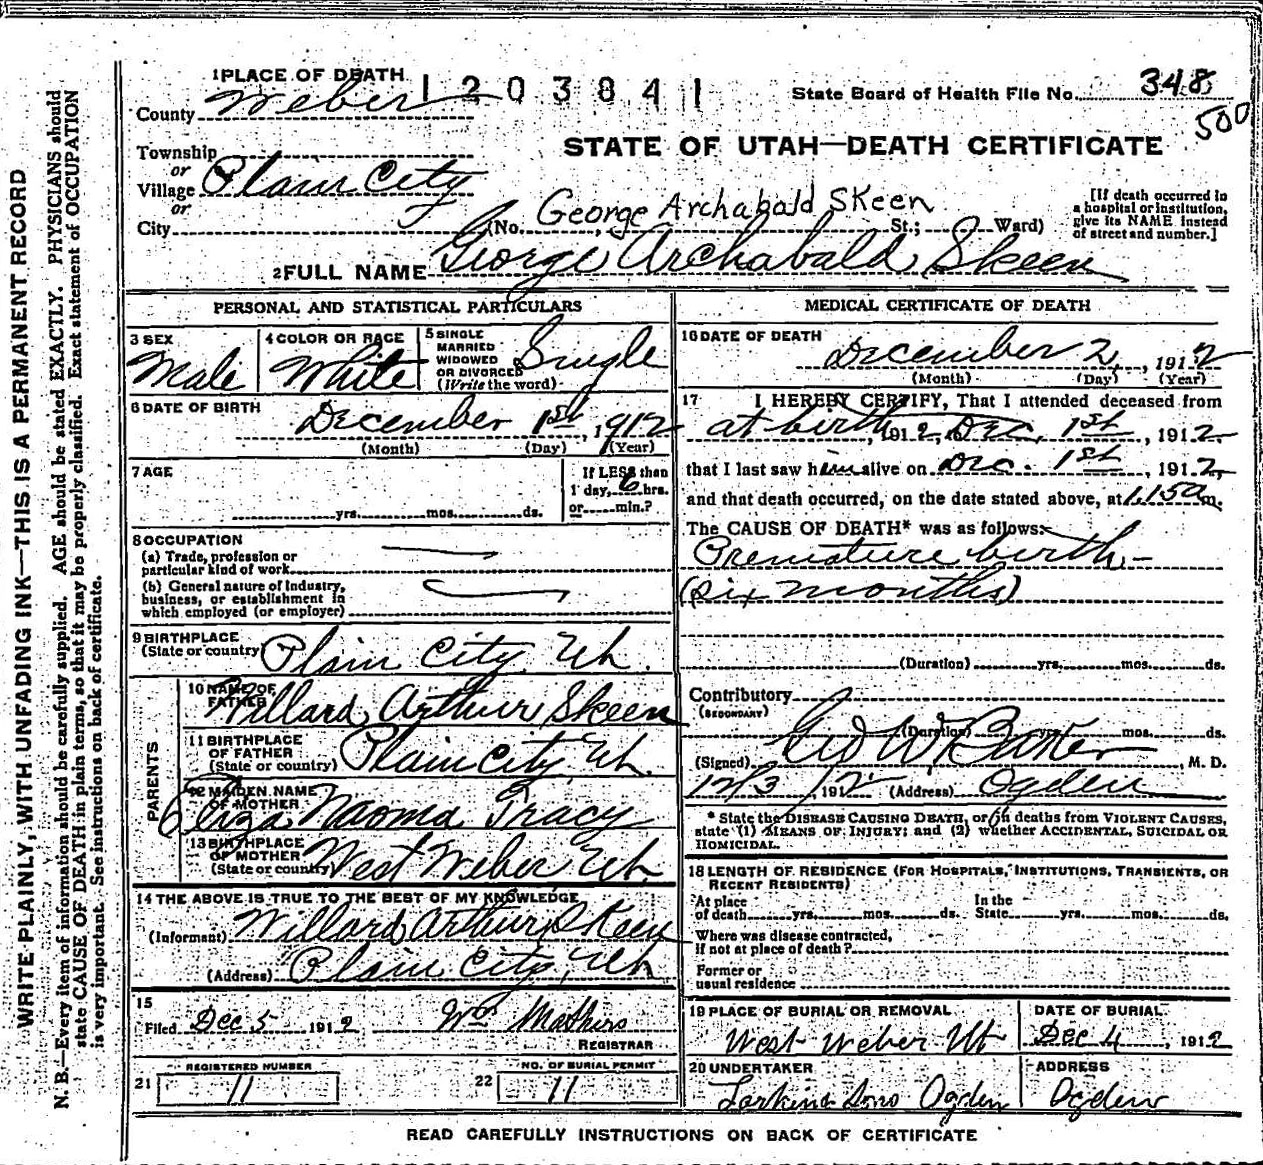 1 PLACE OF DEATH 1 2 0 3 8 4 1
State Board of Health File No. 348
500
County Weber
STATE OF UTAH—DEATH CERTIFICATE
Township
or
Village Plain City
or
City (No. George Archabald Skeen St.; Ward)
[If death occurred in
a hospital or institution,
give its NAME instead
of street and number.]
2 FULL NAME George Archabald Skeen
PERSONAL AND STATISTICAL PARTICULARS
3 SEX
Male
4 COLOR OR RACE
White
5 SINGLE
MARRIED
WIDOWED
OR DIVORCED
(Write the word)
Single
6 DATE OF BIRTH
December 1st, 1912
(Month) (Day) (Year)
7 AGE
yrs. mos. ds.
If LESS than
1 day, 6 hrs.
or min.?
8 OCCUPATION
(a) Trade, profession or
particular kind of work
(b) General nature of Industry,
business, or establishment in
which employed (or employer)
9 BIRTHPLACE
(State or country) Plain City Uh.
PARENTS
10 NAME OF
FATHER Willard Arthur Skeen
11 BIRTHPLACE
OF FATHER
(State or country) Plain City, Uh.
12 MAIDEN NAME
OF MOTHER Eliza Naoma Tracy
13 BIRTHPLACE
OF MOTHER
(State or country) West Weber Uh.
14 THE ABOVE IS TRUE TO THE BEST OF MY KNOWLEDGE
(Informant) Willard Arthur Skeen
(Address) Plain City, Uh
15
Filed Dec 5 1912 Wm Mathers
REGISTRAR
REGISTERED NUMBER
21 11
NO. OF BURIAL PERMIT
22 11
MEDICAL CERTIFICATE OF DEATH
16 DATE OF DEATH
December 2, 1912
(Month) (Day) (Year)
17 I HEREBY CERTIFY, That I attended deceased from
at birth, 1912, Dec. 1st, 1912
that I last saw him alive on Dec. 1st, 1912,
and that death occurred, on the date stated above, at 1.150 m.
The CAUSE OF DEATH* was as follows:
Premature birth—
(six months)
(Duration) yrs. mos. ds.
Contributory
(SECONDARY)
(Duration) yrs. mos. ds.
(Signed) Geo W. Baker, M. D.
12/3/12, 1912 (Address) Ogden
* State the DISEASE CAUSING DEATH, or in deaths from VIOLENT CAUSES,
state (1) MEANS OF INJURY; and (2) whether ACCIDENTAL, SUICIDAL OR
HOMICIDAL.
18 LENGTH OF RESIDENCE (FOR HOSPITALS, INSTITUTIONS, TRANSIENTS, OR
RECENT RESIDENTS)
At place
of death yrs. mos. ds.
In the
State yrs. mos. ds.
Where was disease contracted,
if not at place of death?
Former or
usual residence
19 PLACE OF BURIAL OR REMOVAL
West Weber Ut
DATE OF BURIAL
Dec 4, 1912
20 UNDERTAKER
Larkin & Sons Ogden
ADDRESS
Ogden
READ CAREFULLY INSTRUCTIONS ON BACK OF CERTIFICATE
WRITE PLAINLY, WITH UNFADING INK—THIS IS A PERMANENT RECORD
N. B.—Every item of information should be carefully supplied. AGE should be stated EXACTLY. PHYSICIANS should
state CAUSE OF DEATH in plain terms, so that it may be properly classified. Exact statement of OCCUPATION
is very important. See instructions on back of certificate.